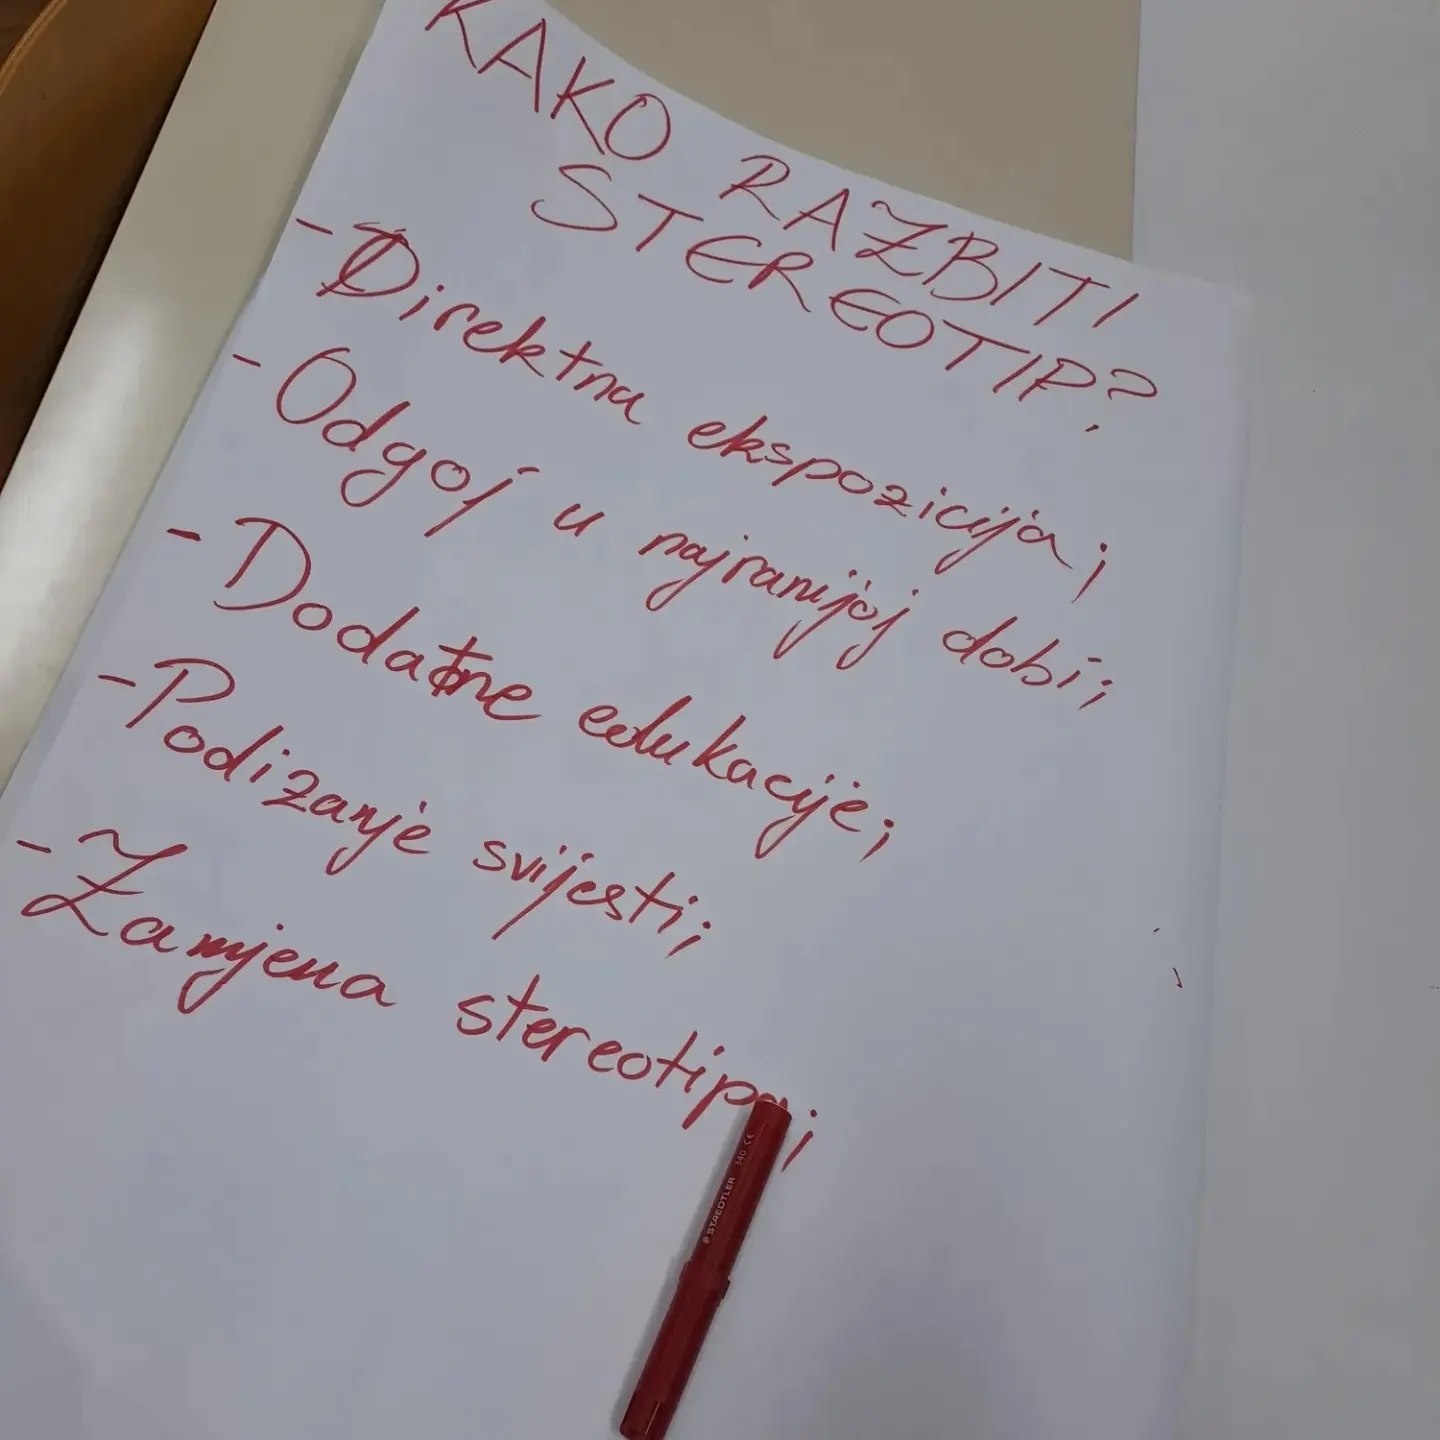 KAKO RAZBITI
STEREOTIP?
- Direktna ekspozicija;
- Odgoj u najranijoj dobi;
- Dodatne edukacije;
- Podizanje svijesti;
- Zamjena stereotipa;
STAEDTLER 340 CE